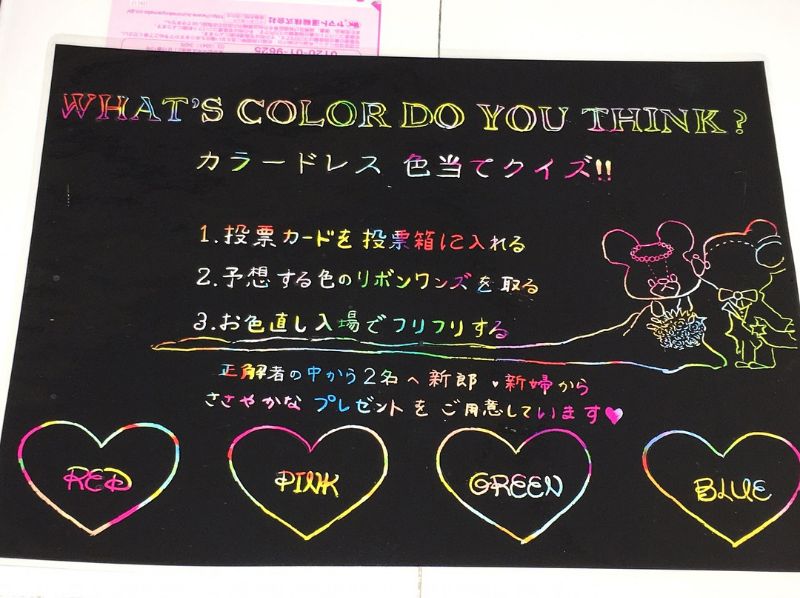 ヤマト運輸株式会社
0120-01-9625
WHAT'S COLOR DO YOU THINK?
カラードレス 色当てクイズ!!
1.投票カードを投票箱に入れる
2.予想する色のリボンワンズを取る
3.お色直し入場でフリフリする
正解者の中から2名へ新郎♥新婦から
ささやかな プレゼントをご用意しています♥
RED
PINK
GREEN
BLUE